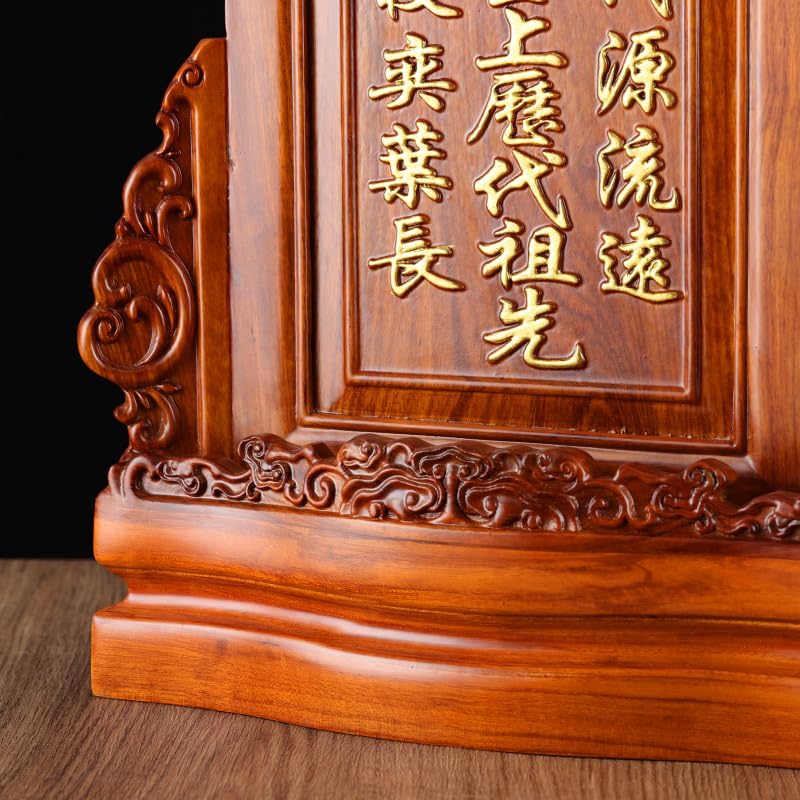 源流遠
上歷代祖先
奕葉長